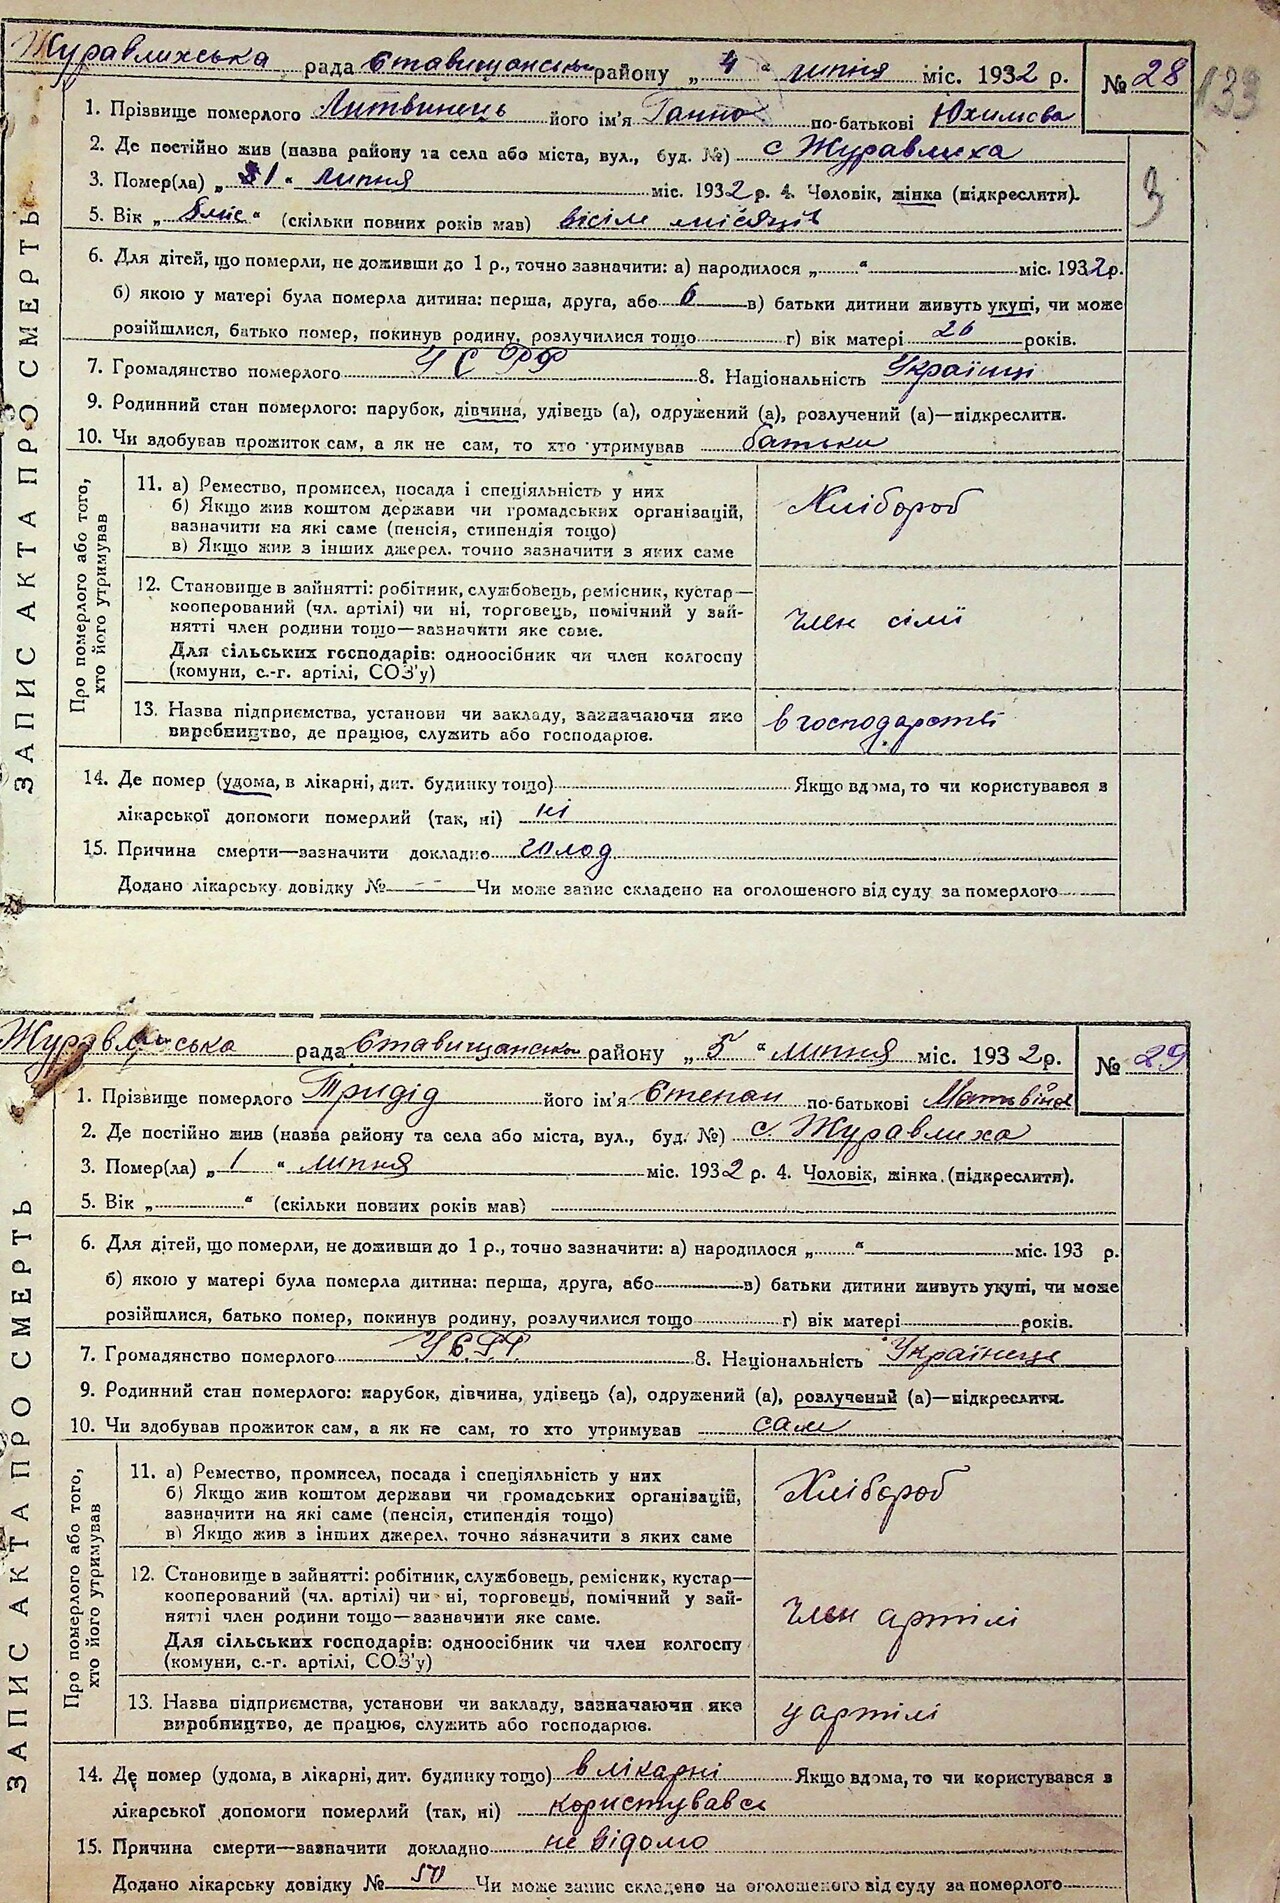 Журавлихська рада Ставищанськ району „ 4 “ липня міс. 1932 р. № 28
133
1. Прізвище померлого Литвинець його ім'я Ганна по-батькові Юхимова
2. Де постійно жив (назва району та села або міста, вул., буд. №) с Журавлиха
3. Помер(ла) „ “ липня міс. 1932 р. 4. Чоловік, жінка (підкреслити).
3
5. Вік „ “ (скільки повних років мав) вісім місяців
6. Для дітей, що померли, не доживши до 1 р., точно зазначити: а) народилося „ “ міс. 1932 р.
б) якою у матері була померла дитина: перша, друга, або 6 в) батьки дитини живуть укупі, чи може
розійшлися, батько помер, покинув родину, розлучилися тощо г) вік матері 26 років.
7. Громадянство померлого УСРР 8. Національність Українці
9. Родинний стан померлого: парубок, дівчина, удівець (а), одружений (а), розлучений (а)—підкреслити.
10. Чи здобував прожиток сам, а як не сам, то хто утримував батьки
ЗАПИС АКТА ПРО СМЕРТЬ
Про померлого або того,
хто його утримував
11. а) Ремество, промисел, посада і спеціяльність у них
б) Якщо жив коштом держави чи громадських організацій,
вазначити на які саме (пенсія, стипендія тощо)
в) Якщо жив з інших джерел. точно зазначити з яких саме
Хлібороб
12. Становище в зайнятті: робітник, службовець, ремісник, кустар—
кооперований (чл. артілі) чи ні, торговець, помічний у зай-
нятті член родини тощо—зазначити яке саме.
Для сільських господарів: одноосібник чи член колгоспу
(комуни, с.-г. артілі, СОЗ'у)
член сімї
13. Назва підприємства, установи чи закладу, зазначаючи яке
виробництво, де працює, служить або господарює.
в господарстві
14. Де помер (удома, в лікарні, дит. будинку тощо) Якщо вдома, то чи користувався з
лікарської допомоги померлий (так, ні) ні
15. Причина смерти—зазначити докладно голод
Додано лікарську довідку № — Чи може запис складено на оголошеного від суду за померлого
Журавлиська рада Ставищанськ району „ 5 “ липня міс. 1932 р. № 29
1. Прізвище померлого Тридід його ім'я Степан по-батькові
2. Де постійно жив (назва району та села або міста, вул., буд. №) с. Журавлиха
3. Помер(ла) „ 1 “ липня міс. 1932 р. 4. Чоловік, жінка (підкреслити).
5. Вік „ “ (скільки повних років мав)
6. Для дітей, що померли, не доживши до 1 р., точно зазначити: а) народилося „ “ міс. 193 р.
б) якою у матері була померла дитина: перша, друга, або в) батьки дитини живуть укупі, чи може
розійшлися, батько помер, покинув родину, розлучилися тощо г) вік матері років.
7. Громадянство померлого УСРР. 8. Національність Українець
9. Родинний стан померлого: парубок, дівчина, удівець (а), одружений (а), розлучений (а)—підкреслити.
10. Чи здобував прожиток сам, а як не сам, то хто утримував сам
ЗАПИС АКТА ПРО СМЕРТЬ
Про померлого або того,
хто його утримував
11. а) Ремество, промисел, посада і спеціяльність у них
б) Якщо жив коштом держави чи громадських організацій,
зазначити на які саме (пенсія, стипендія тощо)
в) Якщо жив з інших джерел. точно зазначити з яких саме
Хлібороб
12. Становище в зайнятті: робітник, службовець, ремісник, кустар—
кооперований (чл. артілі) чи ні, торговець, помічний у зай-
нятті член родини тощо—зазначити яке саме.
Для сільських господарів: одноосібник чи член колгоспу
(комуни, с.-г. артілі, СОЗ'у)
член артілі
13. Назва підприємства, установи чи закладу, зазначаючи яке
виробництво, де працює, служить або господарює.
у артілі
14. Де помер (удома, в лікарні, дит. будинку тощо) в лікарні Якщо вдома, то чи користувався з
лікарської допомоги померлий (так, ні) користувавсь
15. Причина смерти—зазначити докладно не відомо
Додано лікарську довідку № 50 Чи може запис складено на оголошеного від суду за померлого